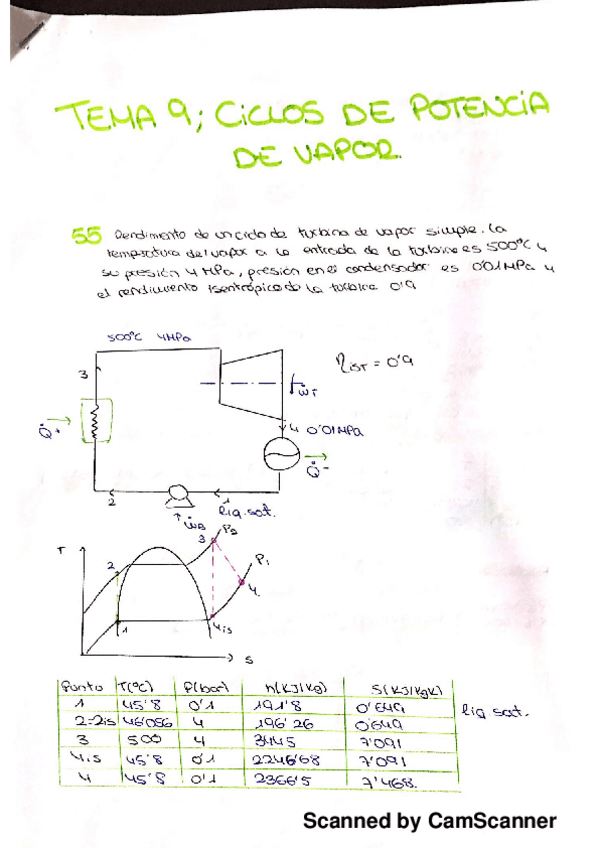 TEMA 9; CICLOS DE POTENCIA
DE VAPOR.
55 Rendimiento de un ciclo de turbina de vapor simple. La
temperatura del vapor a la entrada de la turbina es 500ºC y
su presión 4 MPa, presión en el condensador es 0'01 MPa y
el rendimiento isentrópico de la turbina 0'9
500ºC 4MPa
3
ηisT = 0'9
ẆT
4 0'01MPa
Q̇+
Q̇-
2
1
liq. sat.
ẆB
T
P2
3
P1
2
4.
1
4is
S
Punto T(ºC) P(bar) h(KJ/Kg) S(KJ/KgK)
1 45'8 0'1 191'8 0'649 liq sat.
2-2is 46'056 4 196'26 0'649
3 500 4 3445 7'091
4is 45'8 0'1 2246'68 7'091
4 45'8 0'1 2366'5 7'468.
Scanned by CamScanner